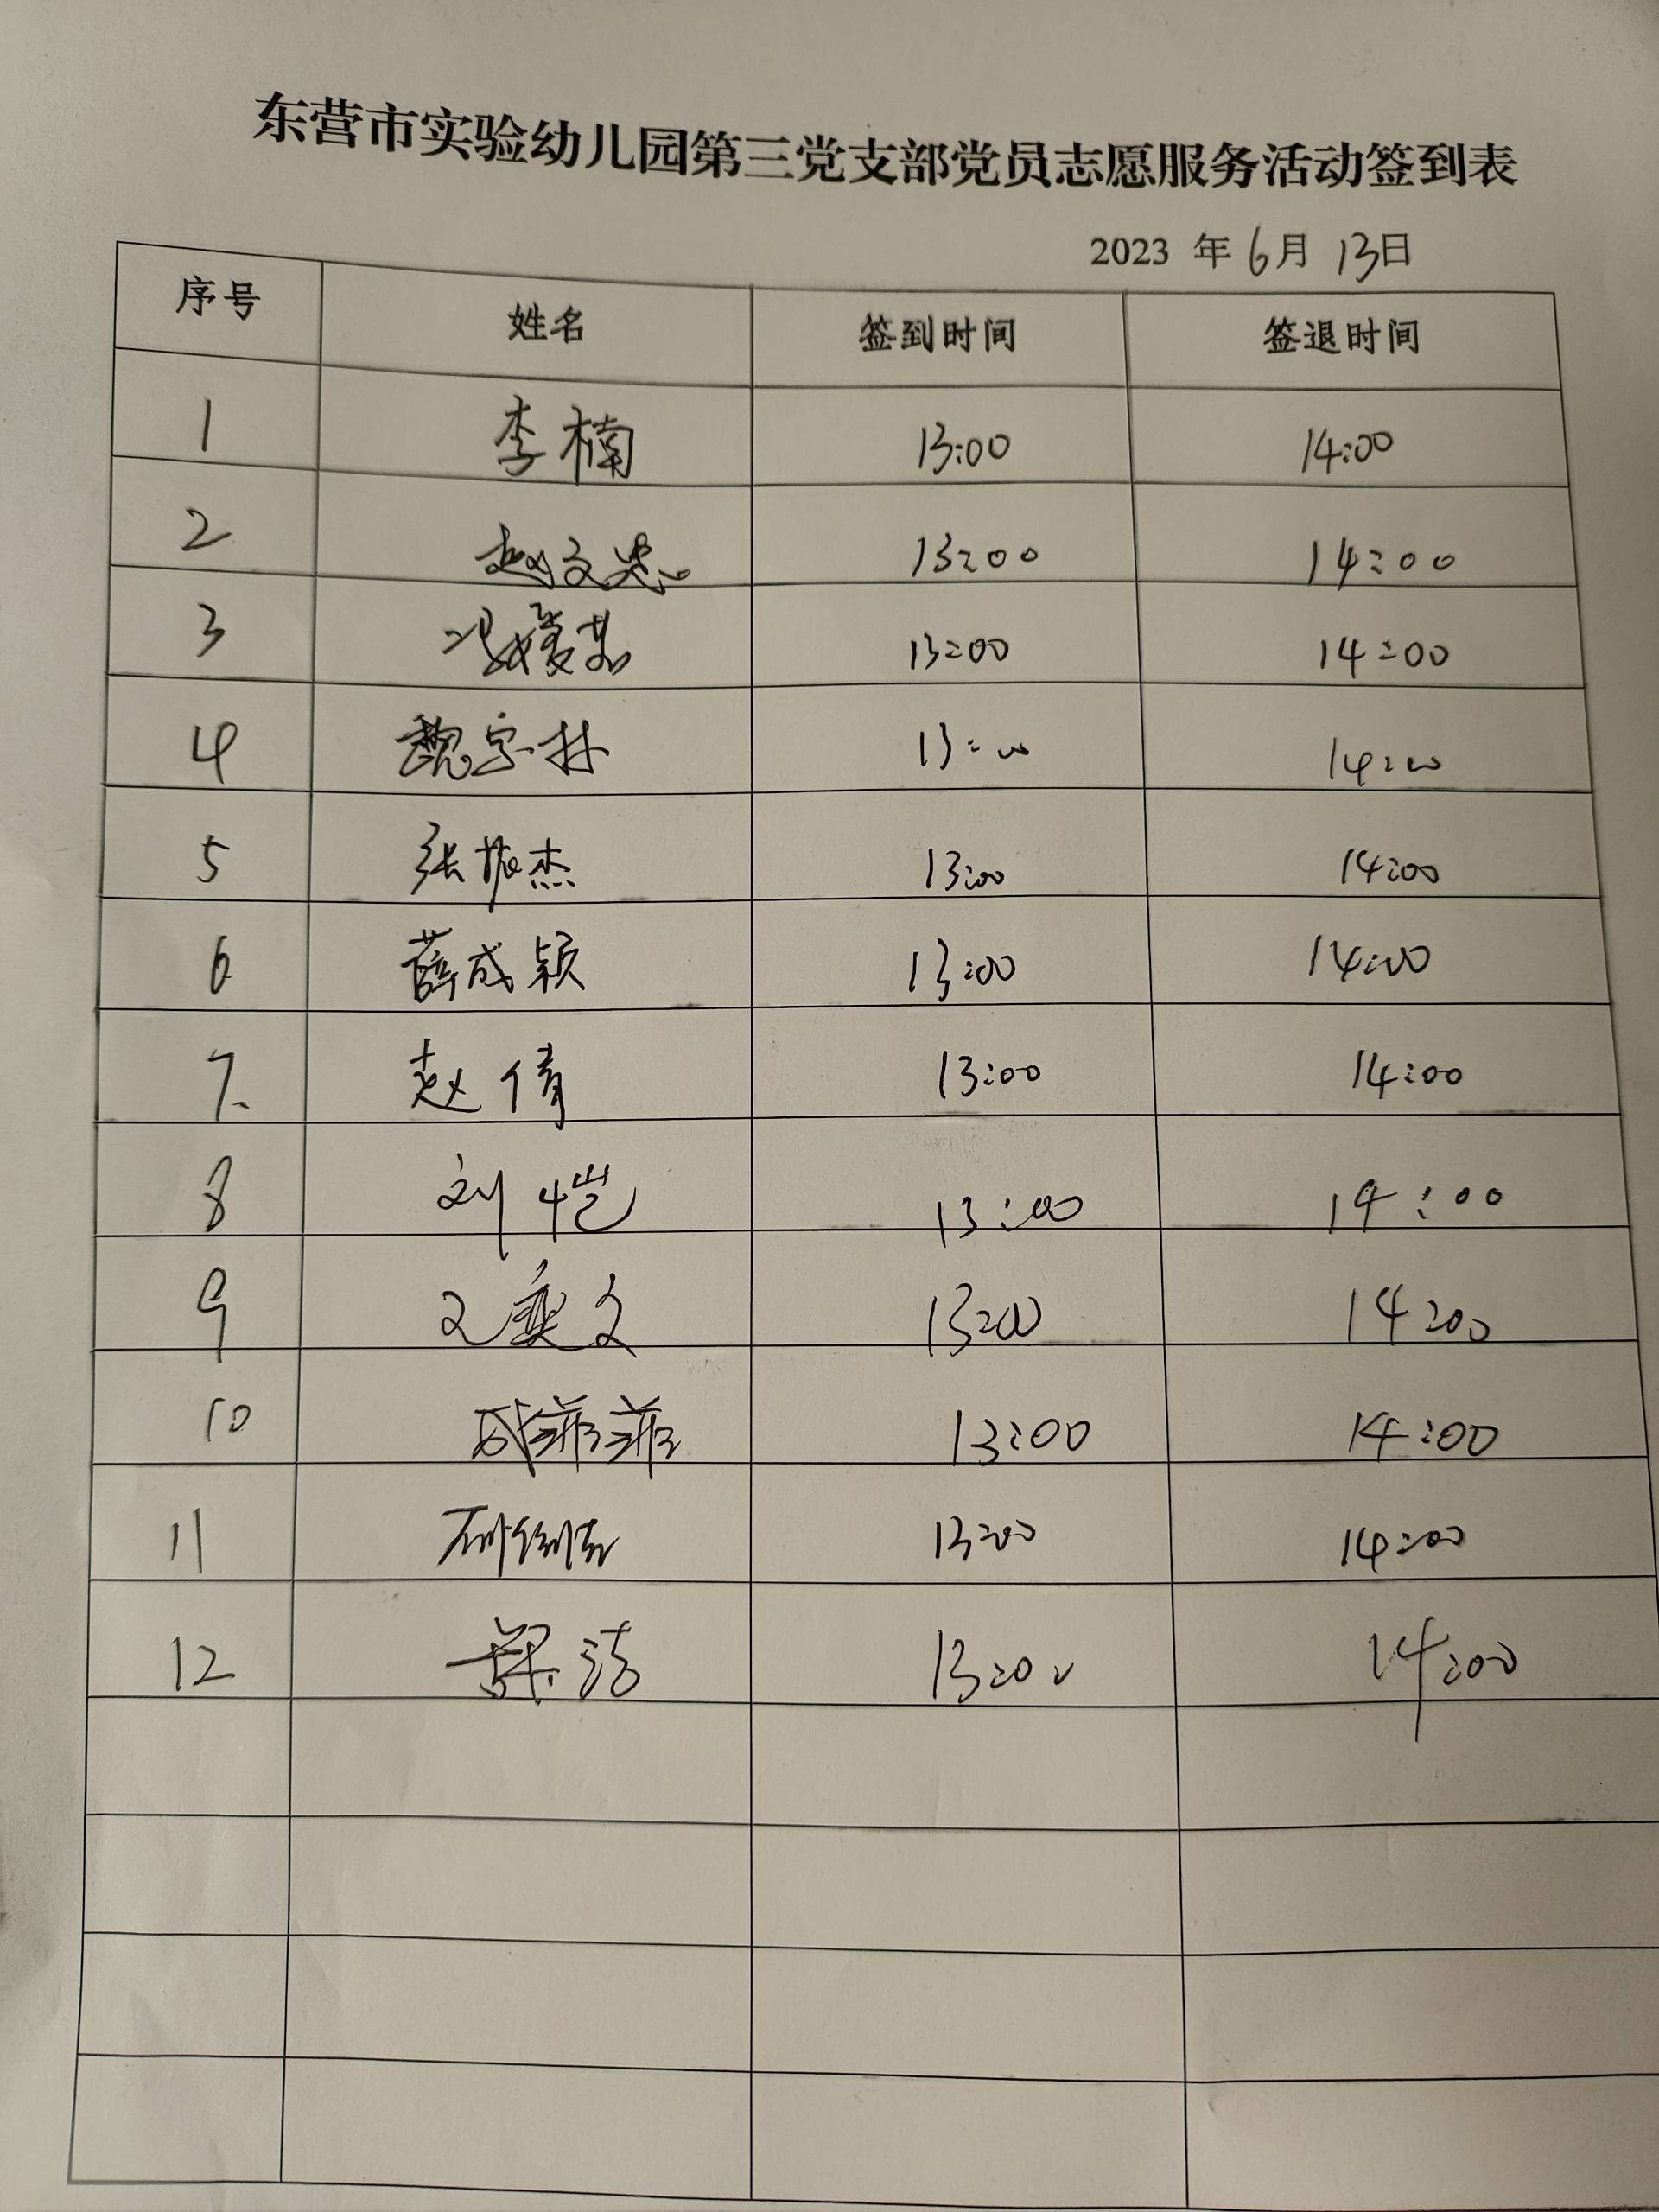 东营市实验幼儿园第三党支部党员志愿服务活动签到表
2023 年 6月 13日
序号 姓名 签到时间 签退时间
1 李楠 13:00 14:00
2 13:00 14:00
3 13:00 14:00
4 魏宇林 13:00 14:00
5 张振杰 13:00 14:00
6 薛成颖 13:00 14:00
7. 赵倩 13:00 14:00
8 刘恺 13:00 14:00
9 13:00 14:00
10 戚菲菲 13:00 14:00
11 13:00 14:00
12 13:00 14:00